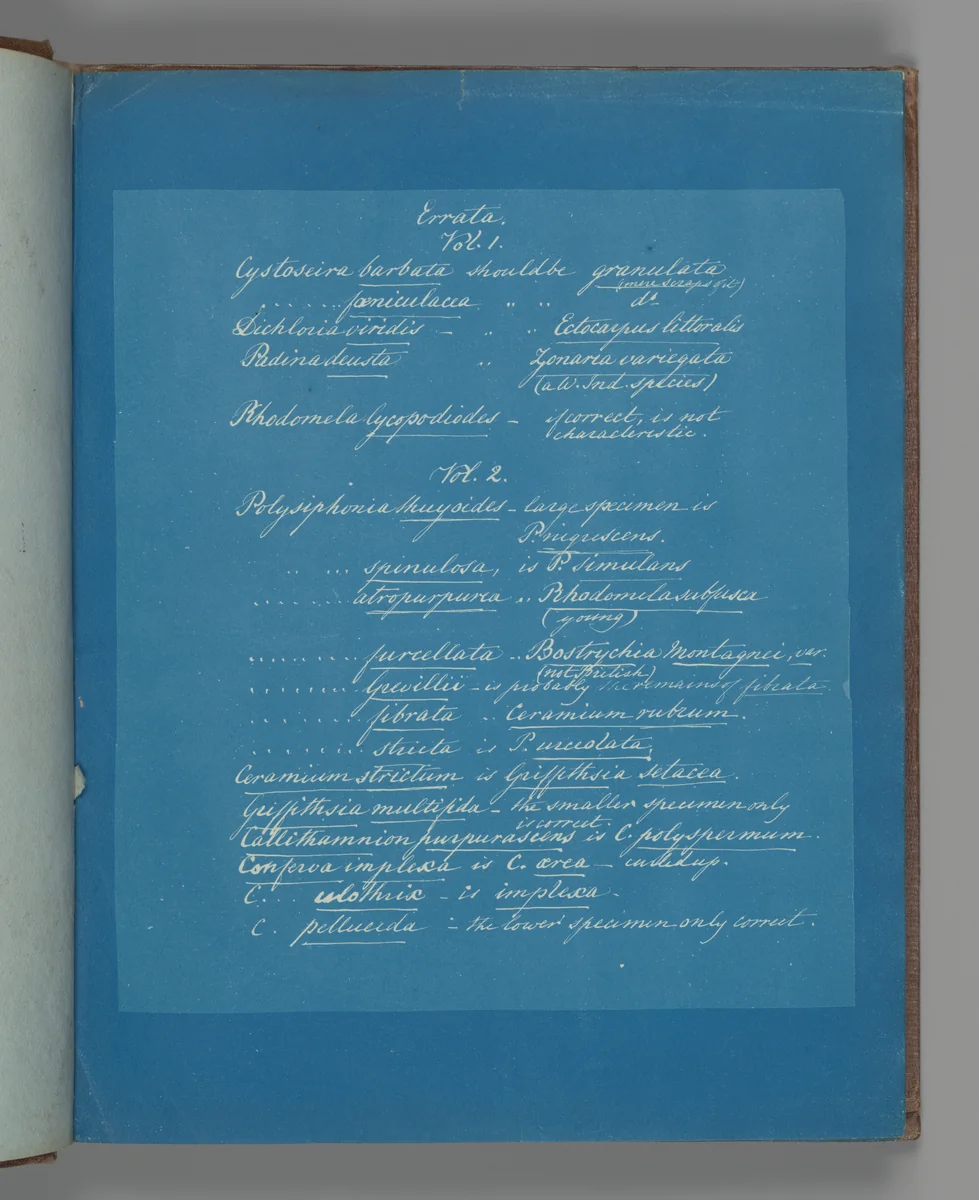 Errata.
Vol. 1.
Cystoseira barbata should be granulata
(mere scraps of it)
........ fœniculacea " " do
Dichloria viridis — " " Ectocarpus littoralis
Padina deusta " Zonaria variegata
(a W. Ind. species)
Rhodomela lycopodiodes — if correct, is not
characteristic.
Vol. 2.
Polysiphonia thuyoides — large specimen is
P. nigrescens.
.. .. ... spinulosa, is P. simulans
........ atropurpurea .. Rhodomela subfusca
(young)
........ furcellata .. Bostrychia Montagnei, var.
(not British)
........ Grevillii — is probably the remains of fibrata.
........ fibrata .. Ceramium rubrum.
........ stricta is P. urceolata.
Ceramium strictum is Griffithsia setacea.
Griffithsia multifida — the smaller specimen only
is correct.
Callithamnion purpurascens is C. polyspermum.
Conferva implexa is C. ærea — curled up.
C. ... ulothrix — is implexa —
C. pellucida — the lower specimen only correct.